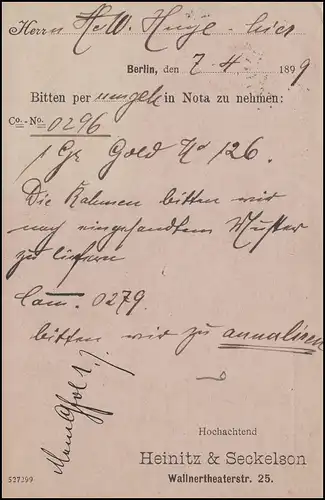 Herrn H.W. Hugo - hier
Berlin, den 7-4 1899
Bitten per umgeh in Nota zu nehmen:
Co.-No. 0296
1 Gr Gold No 126.
Die Rahmen bitten wir
nach eingesandtem Muster
zu liefern
Com. 0279.
bitten wir zu annuliren
Hochachtend
Heinitz & Seckelson
Wallnertheaterstr. 25.
527399